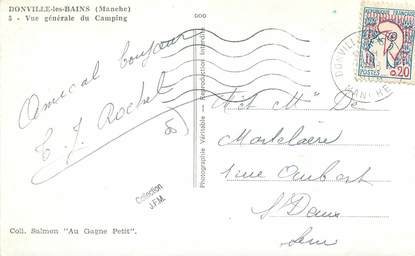 DONVILLE-les-BAINS (Manche)
5 - Vue générale du Camping
DOO
REPUBLIQUE FRANÇAISE
POSTES 0,20
DONVILLE
MANCHE
Amical bonjour
J. Rochel
Photographie Véritable - Reproduction Interdite
Collection
J.F.M.
Mr et Mme De
rue
St Denis
Seine
Coll. Salmon "Au Gagne Petit".